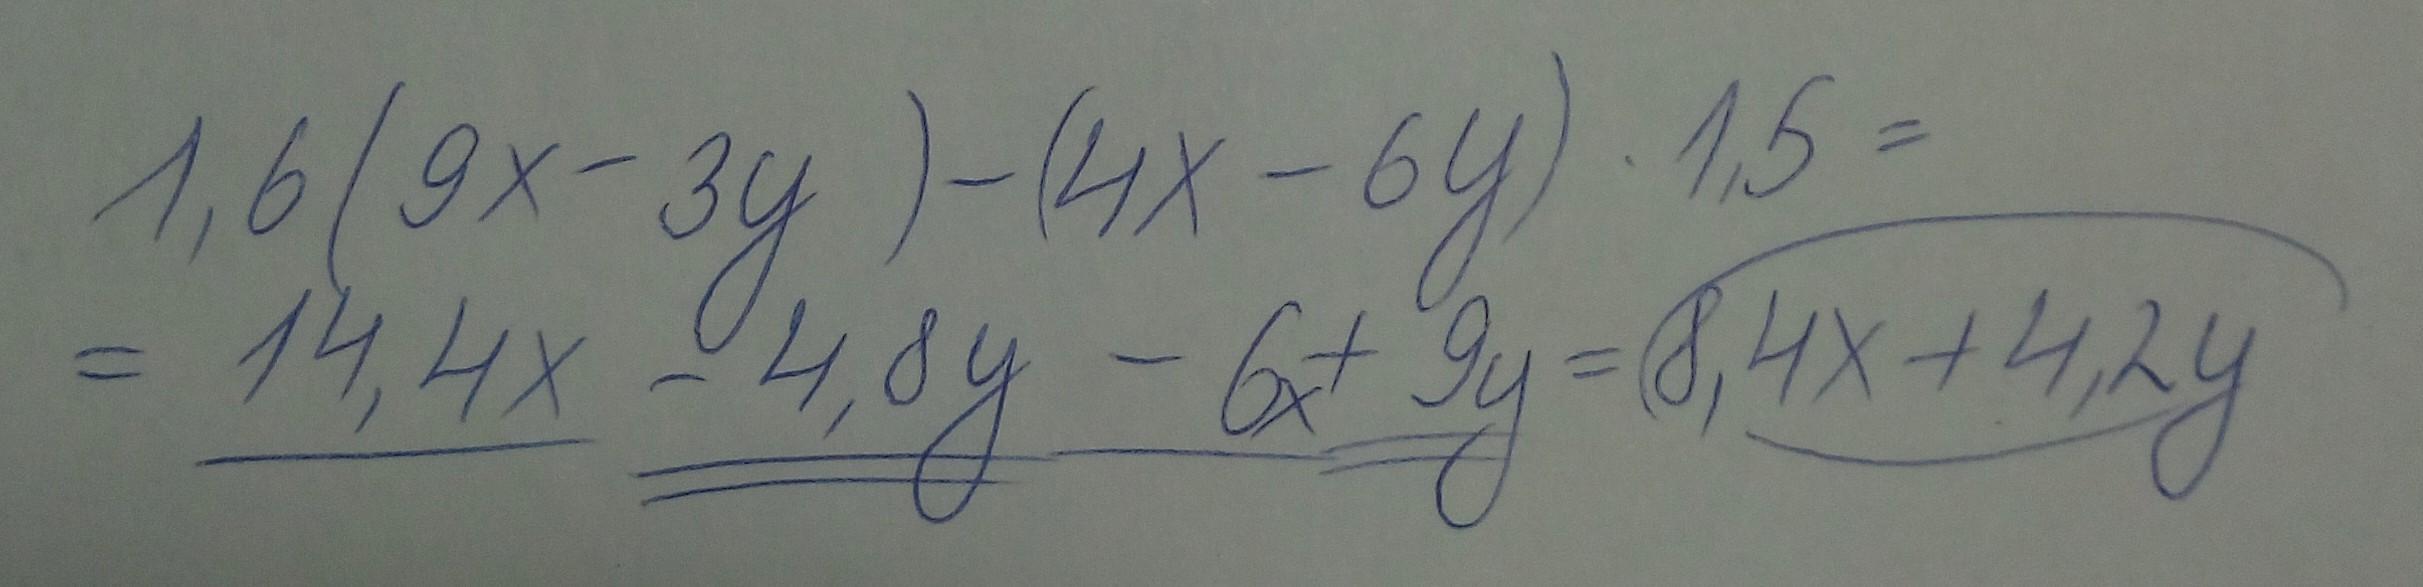 1,6(9x-3y)-(4x-6y)·1,5=
=14,4x-4,8y-6x+9y=8,4x+4,2y